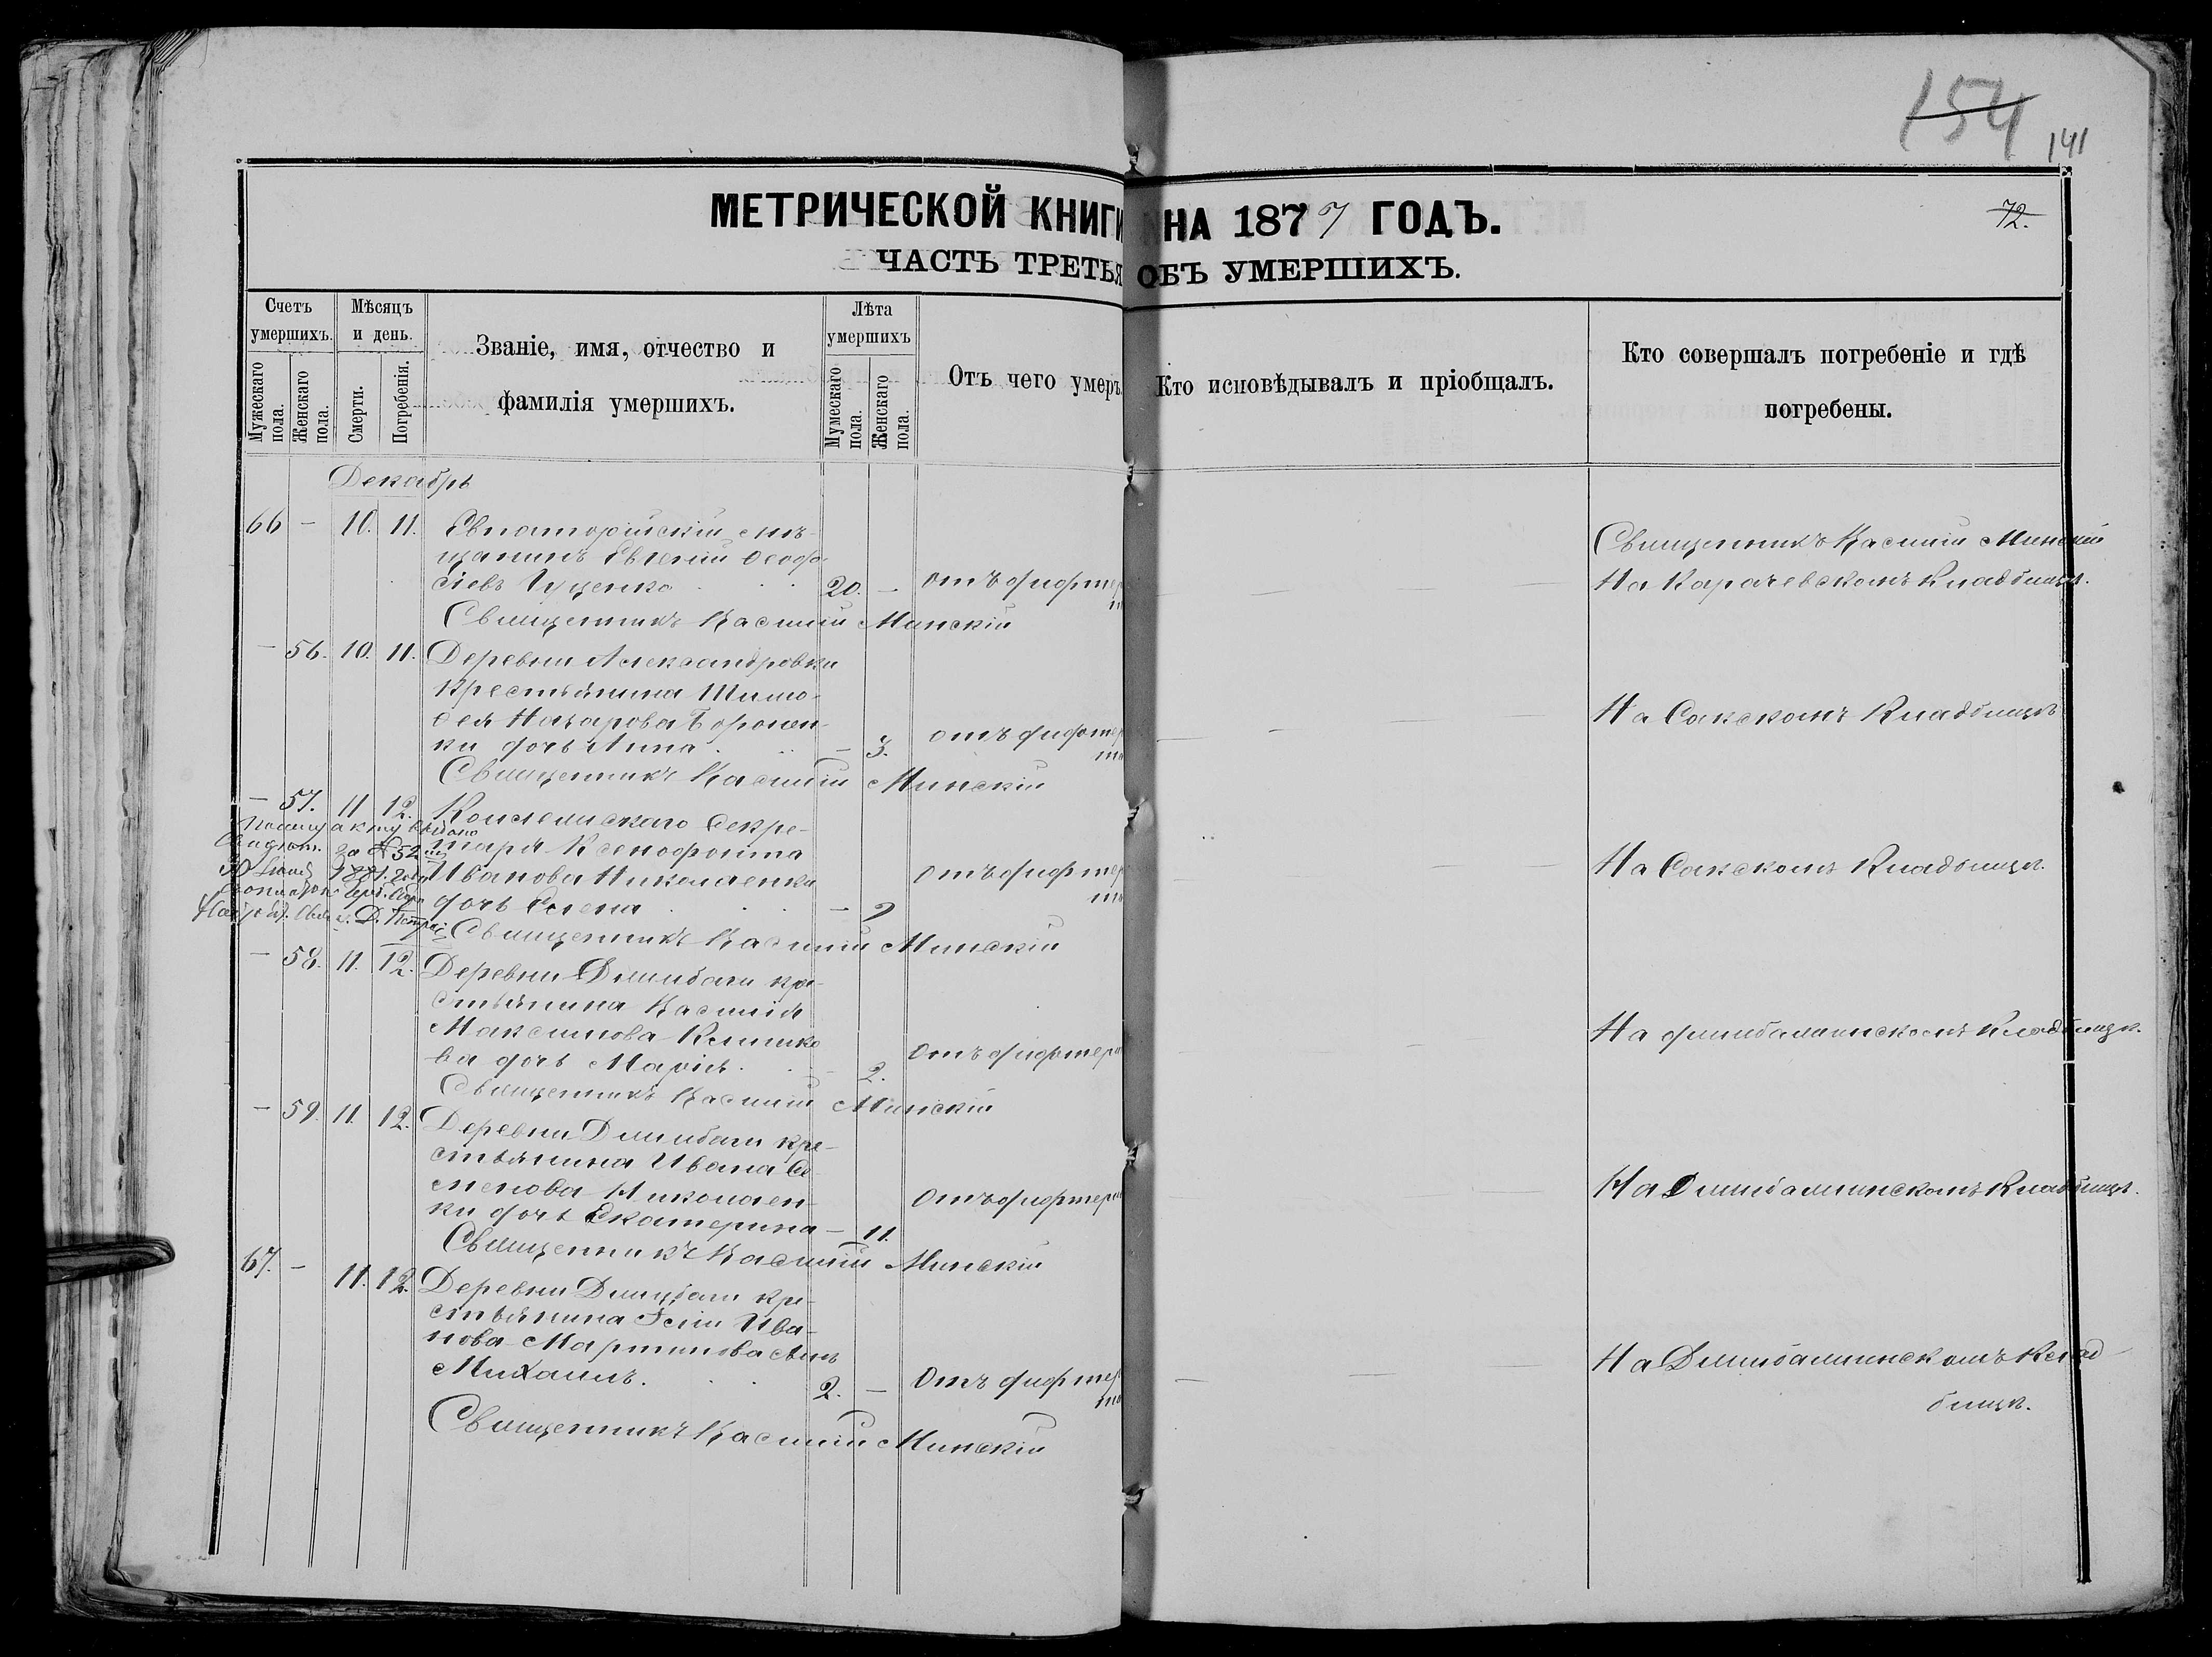 154
141
МЕТРИЧЕСКОЙ КНИГИ НА 1877 ГОДЪ.
72.
ЧАСТЬ ТРЕТЬЯ ОБЪ УМЕРШИХЪ.
Счетъ умершихъ.
Мужескаго пола.
Женскаго пола.
Мѣсяцъ и день.
Смерти.
Погребенія.
Званіе, имя, отчество и
фамилія умершихъ.
Лѣта умершихъ
Мужескаго пола.
Женскаго пола.
Отъ чего умеръ
Кто исповѣдывалъ и пріобщалъ.
Кто совершалъ погребеніе и гдѣ
погребены.
Декабрь
66 — 10. 11. Евпаторійскій мѣ-
щанинъ Евгеній Ѳеофо-
сіевъ 20. — отъ дифтер
Священникъ Василій Минскій
На Карачевскомъ Кладбищѣ.
Священникъ Василій Минскій
— 56. 10. 11. Деревни Александровки
крестьянина Тимо-
ѳея Назарова Бороненки
ки дочь Анна — 3. отъ дифтер
На Сакскомъ Кладбищѣ
Священникъ Василій Минскій
— 57. 11 12. Коллежскаго Секре-
таря Ксенофонта
Иванова Николаенки
дочь Елена — 9 отъ дифтер
На Сакскомъ Кладбищѣ.
По сему акту выдано
за № 52
1881 года
Священникъ Василій Минскій
— 58. 11. 12. Деревни Джибаги кре-
стьянина Василія
Максимова Климко
ва дочь Марія. — 2. Отъ дифтери
Кладбищѣ.
Священникъ Василій Минскій
— 59. 11. 12. Деревни кре-
стьянина Ивана Се-
менова Николаен-
ки дочь Екатерина — 11. Отъ дифтери
На Кладбищѣ.
Священникъ Василій Минскій
67. — 11. 12. Деревни кре-
стьянина Ива-
нова Мартинова сынъ
Михаилъ. 2. — Отъ дифтер
На Клад
бищѣ.
Священникъ Василій Минскій